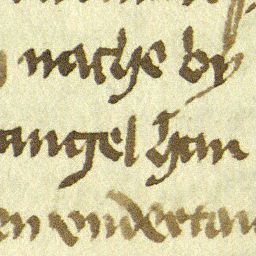 nache by
angel han
en vndertan